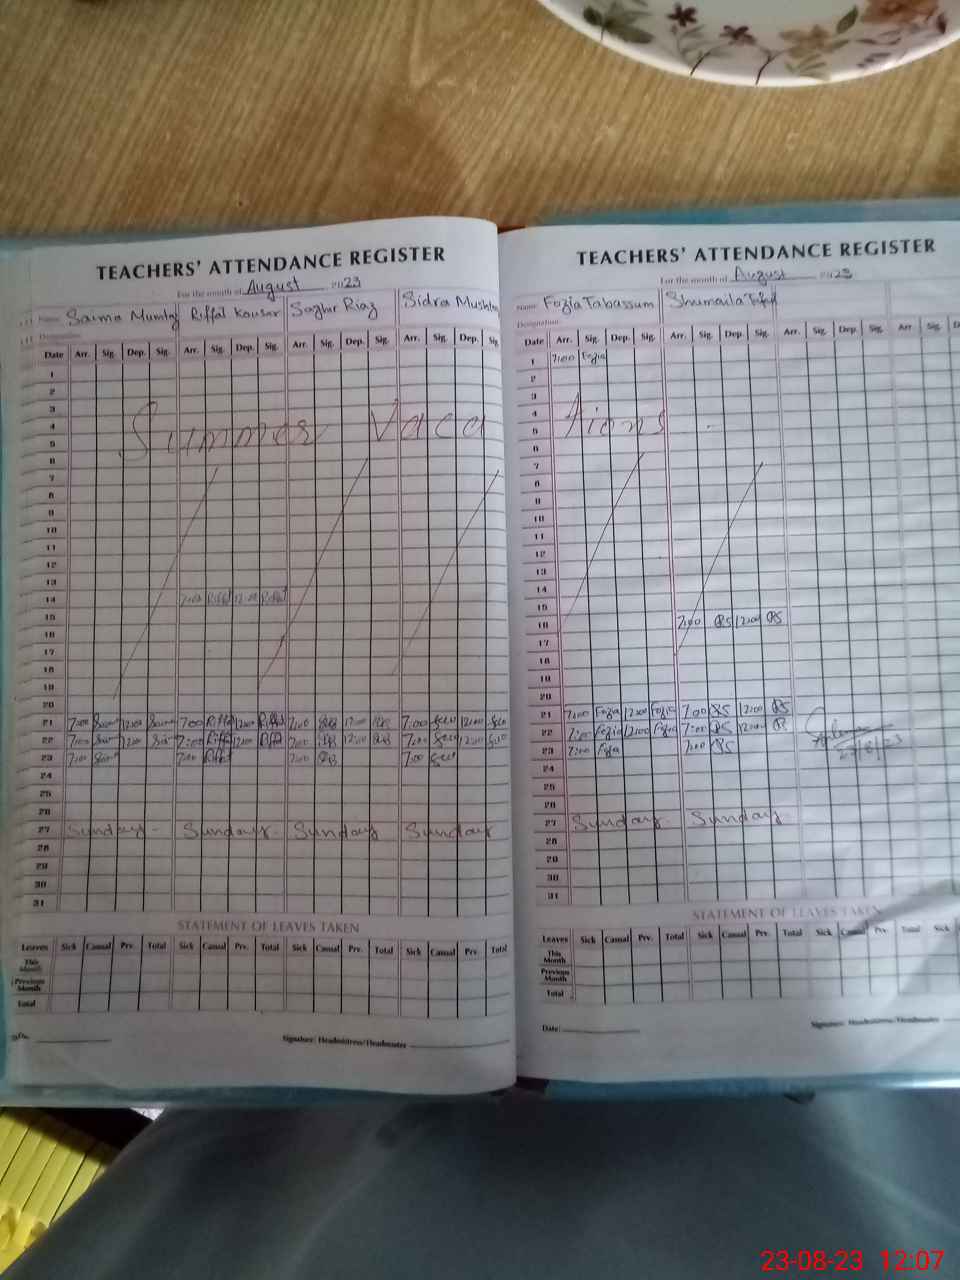 TEACHERS' ATTENDANCE REGISTER
For the month of August 2023
Name Saima Mumtaz Riffat Kousar Saghir Riaz Sidra Mushtaq
Designation
Date Arr. Sig. Dep. Sig. Arr. Sig. Dep. Sig. Arr. Sig. Dep. Sig. Arr. Sig. Dep. Sig.
1
2
3
4 Summer Vaca
5
6
7
8
9
10
11
12
13
14 7:00 Riffat 12:00 Riffat
15
16
17
18
19
20
21 7:00 12:00 7:00 Riffat 12:00 Riffat 7:00 12:00 7:00 12:00
22 7:00 12:00 7:00 Riffat 12:00 Riffat 7:00 12:00 7:00 12:00
23 7:00 7:00 Riffat 7:00 7:00
24
25
26
27 Sunday - Sunday. Sunday Sunday
28
29
30
31
STATEMENT OF LEAVES TAKEN
Leaves Sick Casual Prv. Total Sick Casual Prv. Total Sick Casual Prv. Total Sick Casual Prv. Total
This Month
Previous Month
Total
Signature: Headmistress/Headmaster
TEACHERS' ATTENDANCE REGISTER
For the month of August 2023
Name Fozia Tabassum Shumaila
Designation
Date Arr. Sig. Dep. Sig. Arr. Sig. Dep. Sig. Arr. Sig. Dep. Sig. Arr. Sig.
1 7:00 Fozia
2
3
4 tions
5
6
7
8
9
10
11
12
13
14
15
16 7:00 12:00
17
18
19
20
21 7:00 Fozia 12:00 Fozia 7:00 12:00
22 7:00 Fozia 12:00 Fozia 7:00 12:00
23 7:00 7:00
24
25
26
27 Sunday. Sunday.
28
29
30
31
STATEMENT OF LEAVES TAKEN
Leaves Sick Casual Prv. Total Sick Casual Prv. Total Sick Casual Prv. Total Sick
This Month
Previous Month
Total
Date:
Signature: Headmistress/Headmaster
23-08-23 12:07